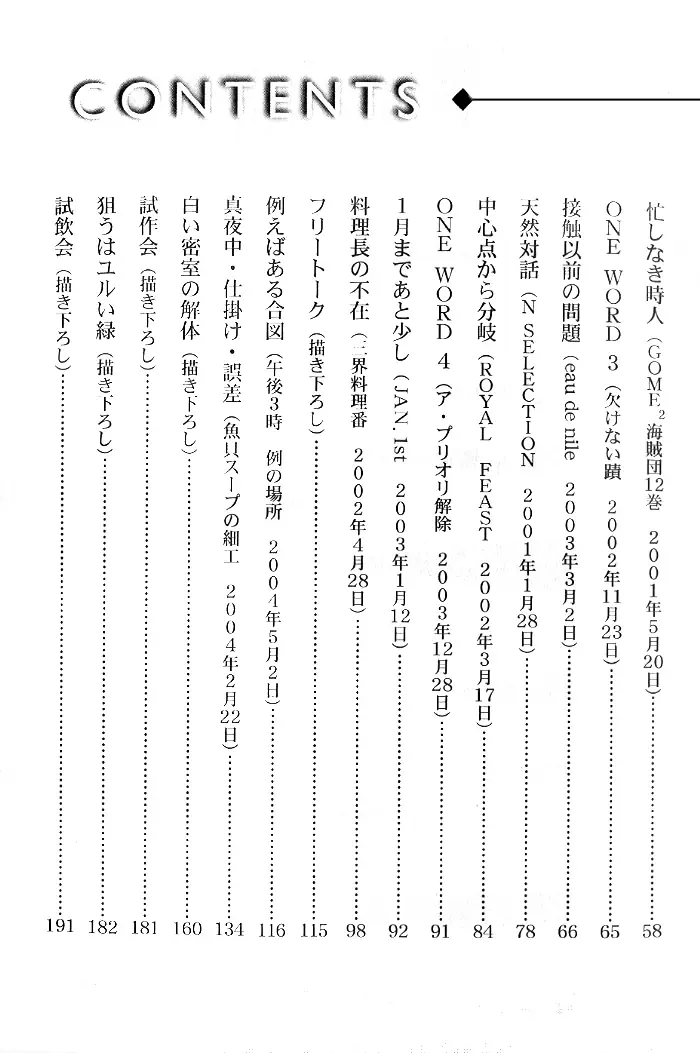 CONTENTS
忙しなき時人（GOME²海賊団12巻　2001年5月20日）……58
ONE WORD 3（欠けない蹟　2002年11月23日）……65
接触以前の問題（eau de nile　2003年3月2日）……66
天然対話（N SELECTION　2001年1月28日）……78
中心点から分岐（ROYAL FEAST　2002年3月17日）……84
ONE WORD 4（ア・プリオリ解除　2003年12月28日）……91
1月まであと少し（JAN. 1st　2003年1月12日）……92
料理長の不在（三界料理番　2002年4月28日）……98
フリートーク（描き下ろし）……115
例えばある合図（午後3時　例の場所　2004年5月2日）……116
真夜中・仕掛け・誤差（魚貝スープの細工　2004年2月22日）……134
白い密室の解体（描き下ろし）……160
試作会（描き下ろし）……181
狙うはユルい緑（描き下ろし）……182
試飲会（描き下ろし）……191